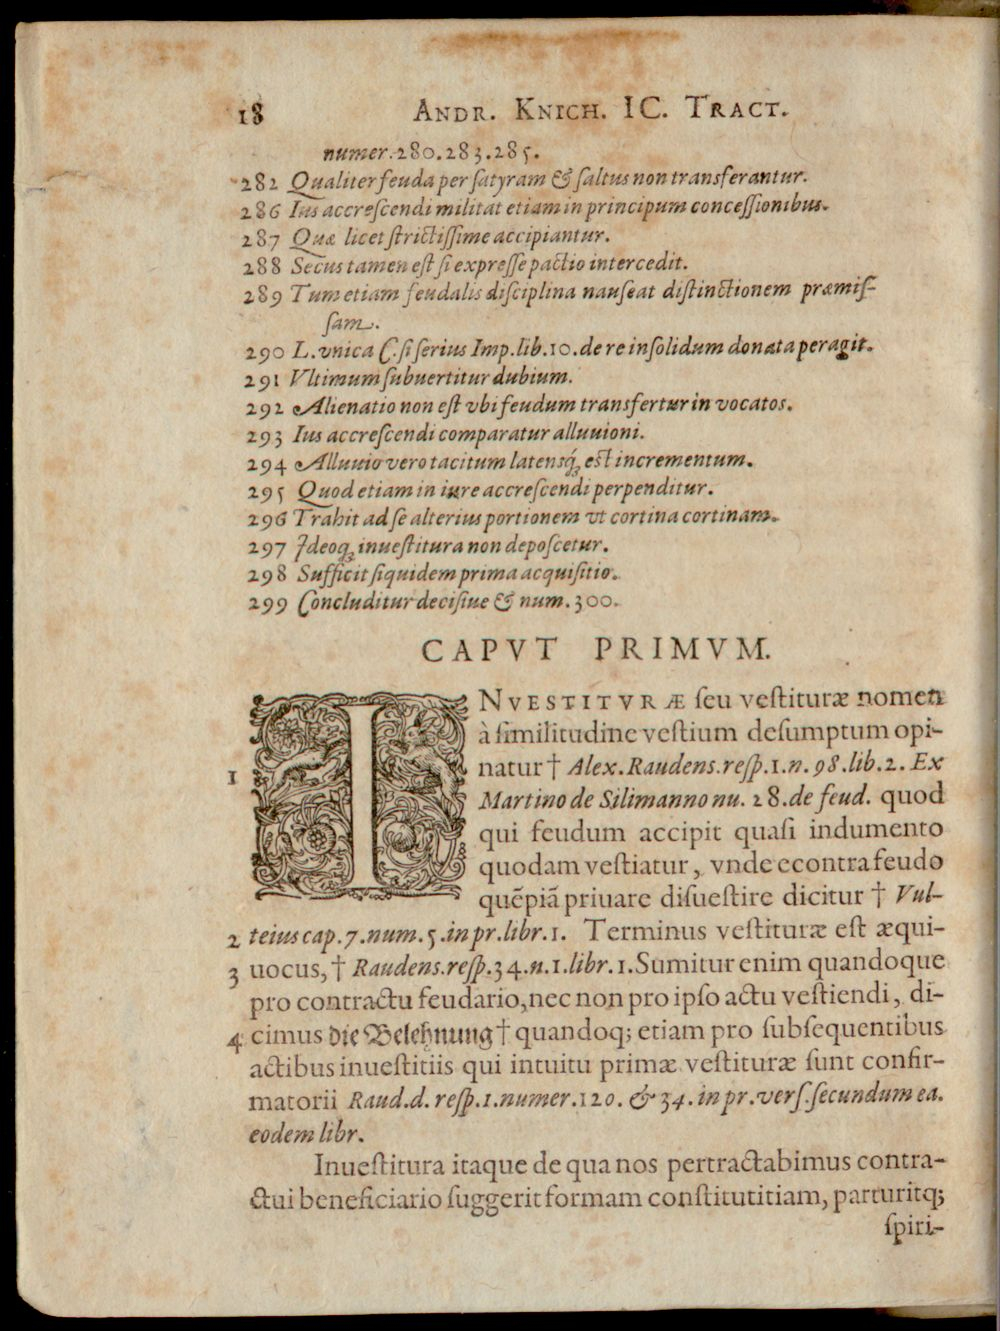 18 ANDR. KNICH. IC. TRACT.
numer. 280. 283. 285.
282 Qualiter feuda per ſatyram & ſaltus non transferantur.
286 Ius accreſcendi militat etiam in principum conceſſionibus.
287 Quæ licet ſtrictiſſime accipiantur.
288 Secus tamen eſt ſi expreſſe pactio intercedit.
289 Tum etiam feudalis diſciplina nauſeat diſtinctionem præmiſ-
ſam.
290 L. vnica C. ſi ſerius Imp. lib. 10. de re inſolidum donata peragit.
291 Vltimum ſubuertitur dubium.
292 Alienatio non eſt vbi feudum transfertur in vocatos.
293 Ius accreſcendi comparatur alluuioni.
294 Alluuio vero tacitum latensq́; est incrementum.
295 Quod etiam in iure accreſcendi perpenditur.
296 Trahit ad ſe alterius portionem vt cortina cortinam.
297 Ideoq; inueſtitura non depoſcetur.
298 Sufficit ſiquidem prima acquiſitio.
299 Concluditur deciſiue & num. 300.
CAPVT PRIMVM.
INVESTITVRÆ ſeu veſtituræ nomen
à ſimilitudine veſtium deſumptum opi-
1 natur † Alex. Raudens. reſp. 1. n. 98. lib. 2. Ex
Martino de Silimanno nu. 28. de feud. quod
qui feudum accipit quaſi indumento
quodam veſtiatur, vnde econtra feudo
quẽpiã priuare diſueſtire dicitur † Vul-
2 teius cap. 7. num. 5. in pr. libr. 1. Terminus veſtituræ eſt æqui-
3 uocus, † Raudens. reſp. 34. n. 1. libr. 1. Sumitur enim quandoque
pro contractu feudario, nec non pro ipſo actu veſtiendi, di-
4 cimus die Belehnung † quandoq; etiam pro ſubſequentibus
actibus inueſtitiis qui intuitu primæ veſtituræ ſunt confir-
matorii Raud. d. reſp. 1. numer. 120. & 34. in pr. verſ. ſecundum ea.
eodem libr.
Inueſtitura itaque de qua nos pertractabimus contra-
ctui beneficiario ſuggerit formam conſtitutitiam, parturitq;
ſpiri-